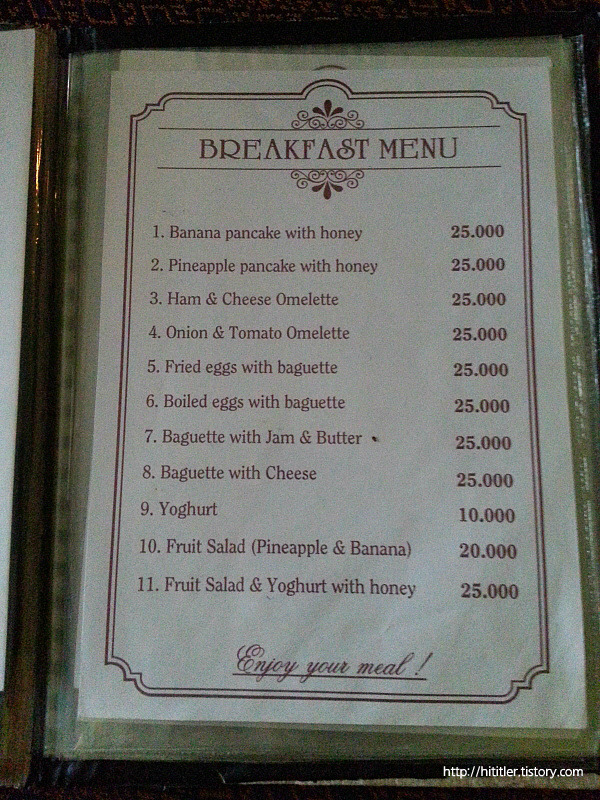 BREAKFAST MENU
1. Banana pancake with honey 25.000
2. Pineapple pancake with honey 25.000
3. Ham & Cheese Omelette 25.000
4. Onion & Tomato Omelette 25.000
5. Fried eggs with baguette 25.000
6. Boiled eggs with baguette 25.000
7. Baguette with Jam & Butter 25.000
8. Baguette with Cheese 25.000
9. Yoghurt 10.000
10. Fruit Salad (Pineapple & Banana) 20.000
11. Fruit Salad & Yoghurt with honey 25.000
Enjoy your meal !
http://hititler.tistory.com